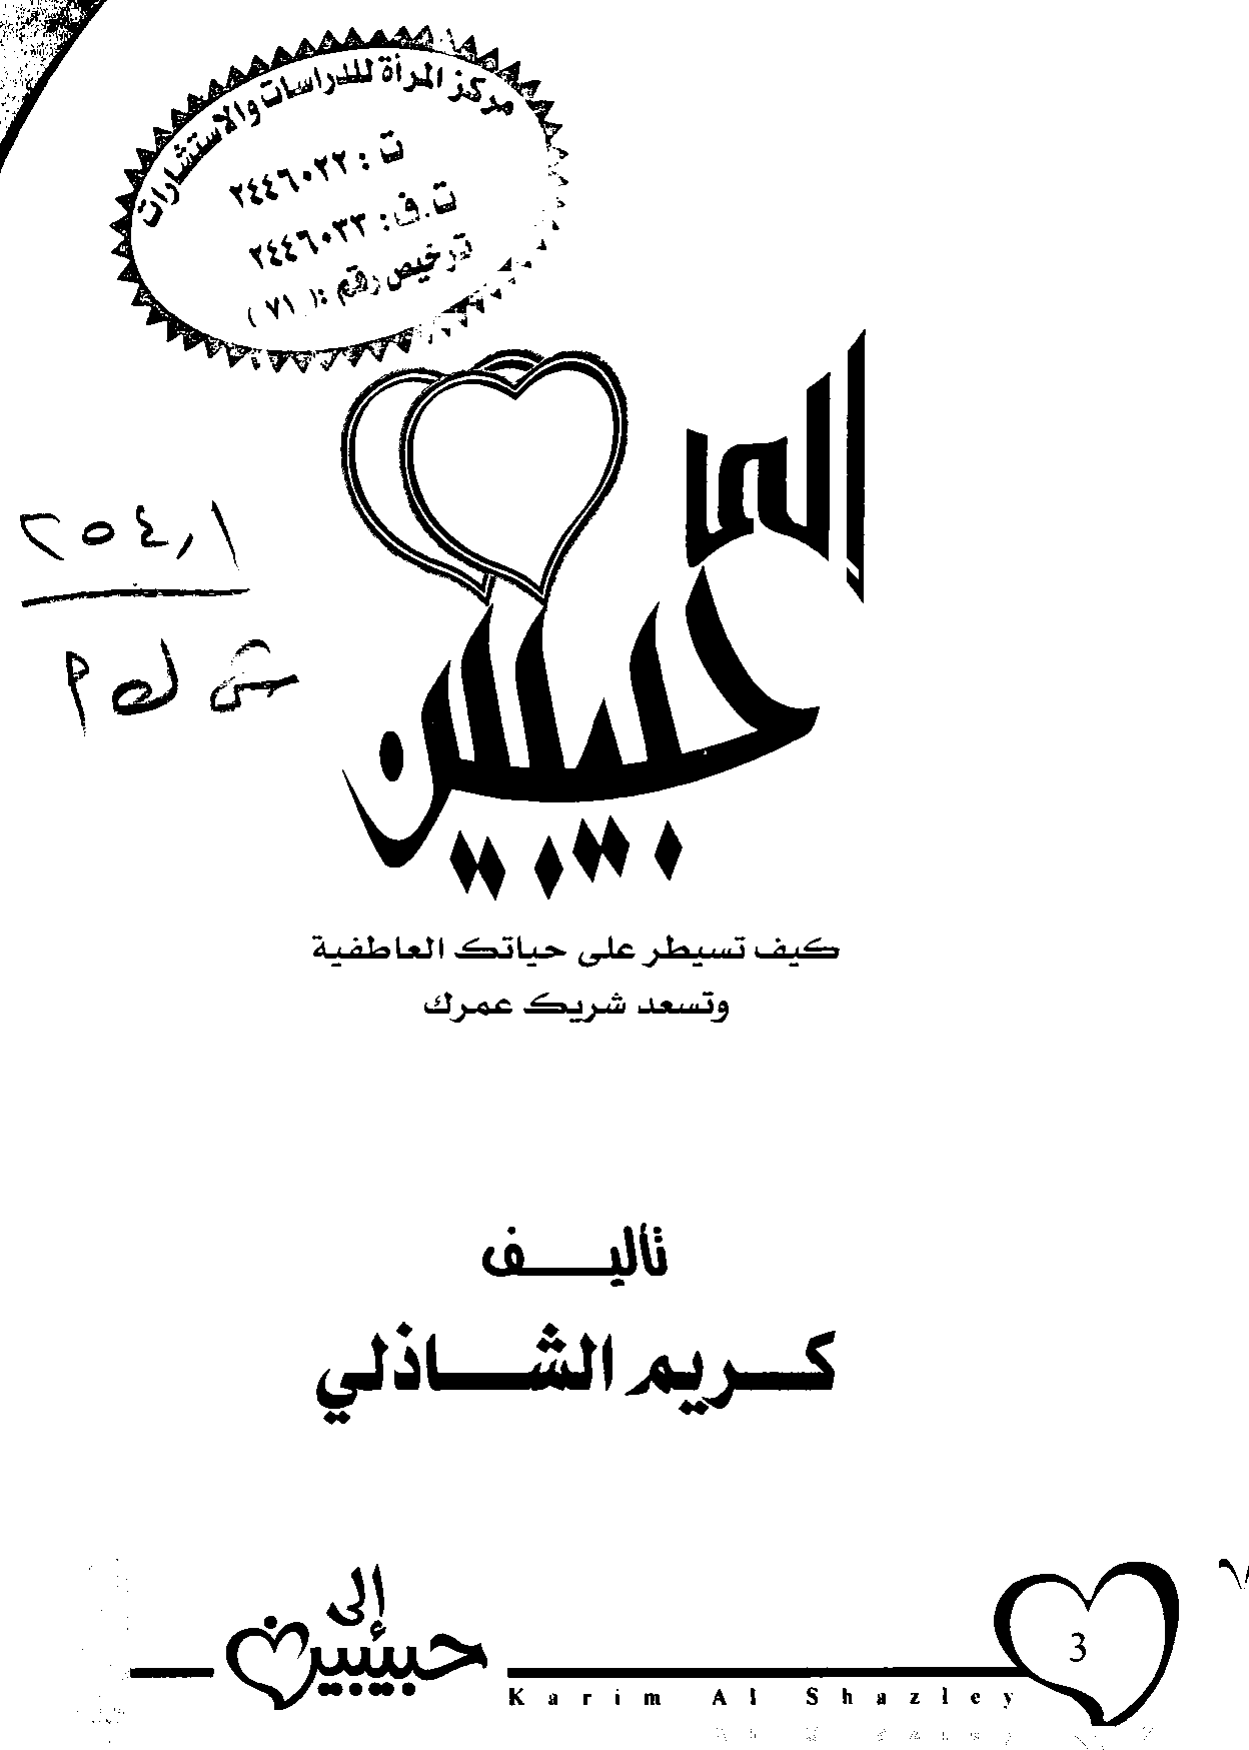 مركز المرأة للدراسات والاستشارات
ت : ٢٤٤٦٠٢٢
ت.ف: ٢٤٤٦٠٣٣
ترخيص رقم :( ٧١ )
٢٥٤٫١
ش ك م
إلى
حبيبين
كيف تسيطر على حياتك العاطفية
وتسعد شريك عمرك
تأليف
كريم الشاذلي
إلى
حبيبين
3
Karim Al Shazley